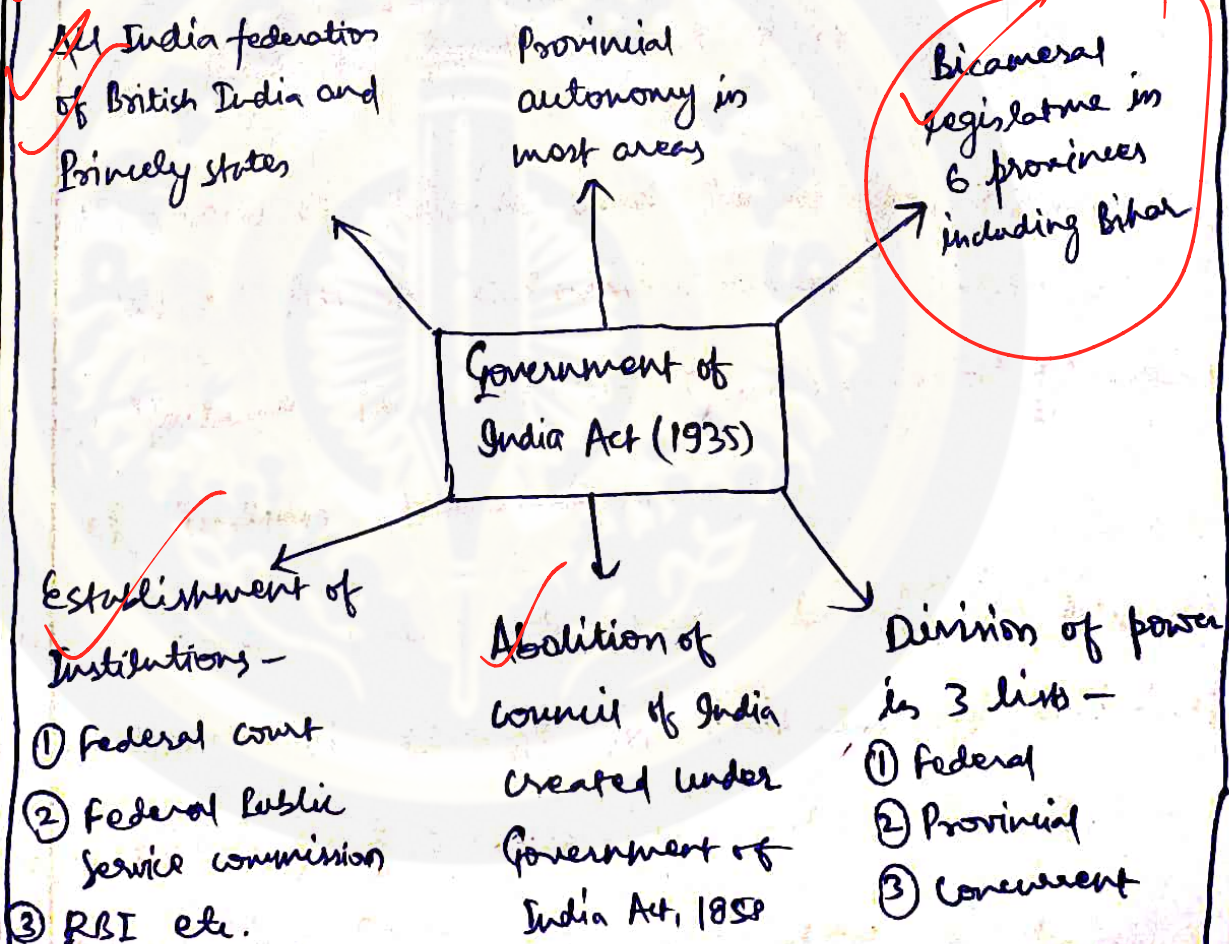 All India federation
of British India and
Princely states
Provincial
autonomy in
most areas
Bicameral
legislature in
6 provinces
including Bihar
Government of
India Act (1935)
Establishment of
Institutions -
① Federal court
② Federal Public
Service commission
③ RBI etc.
Abolition of
council of India
created under
Government of
India Act, 1858
Division of power
in 3 lists -
① Federal
② Provincial
③ Concurrent